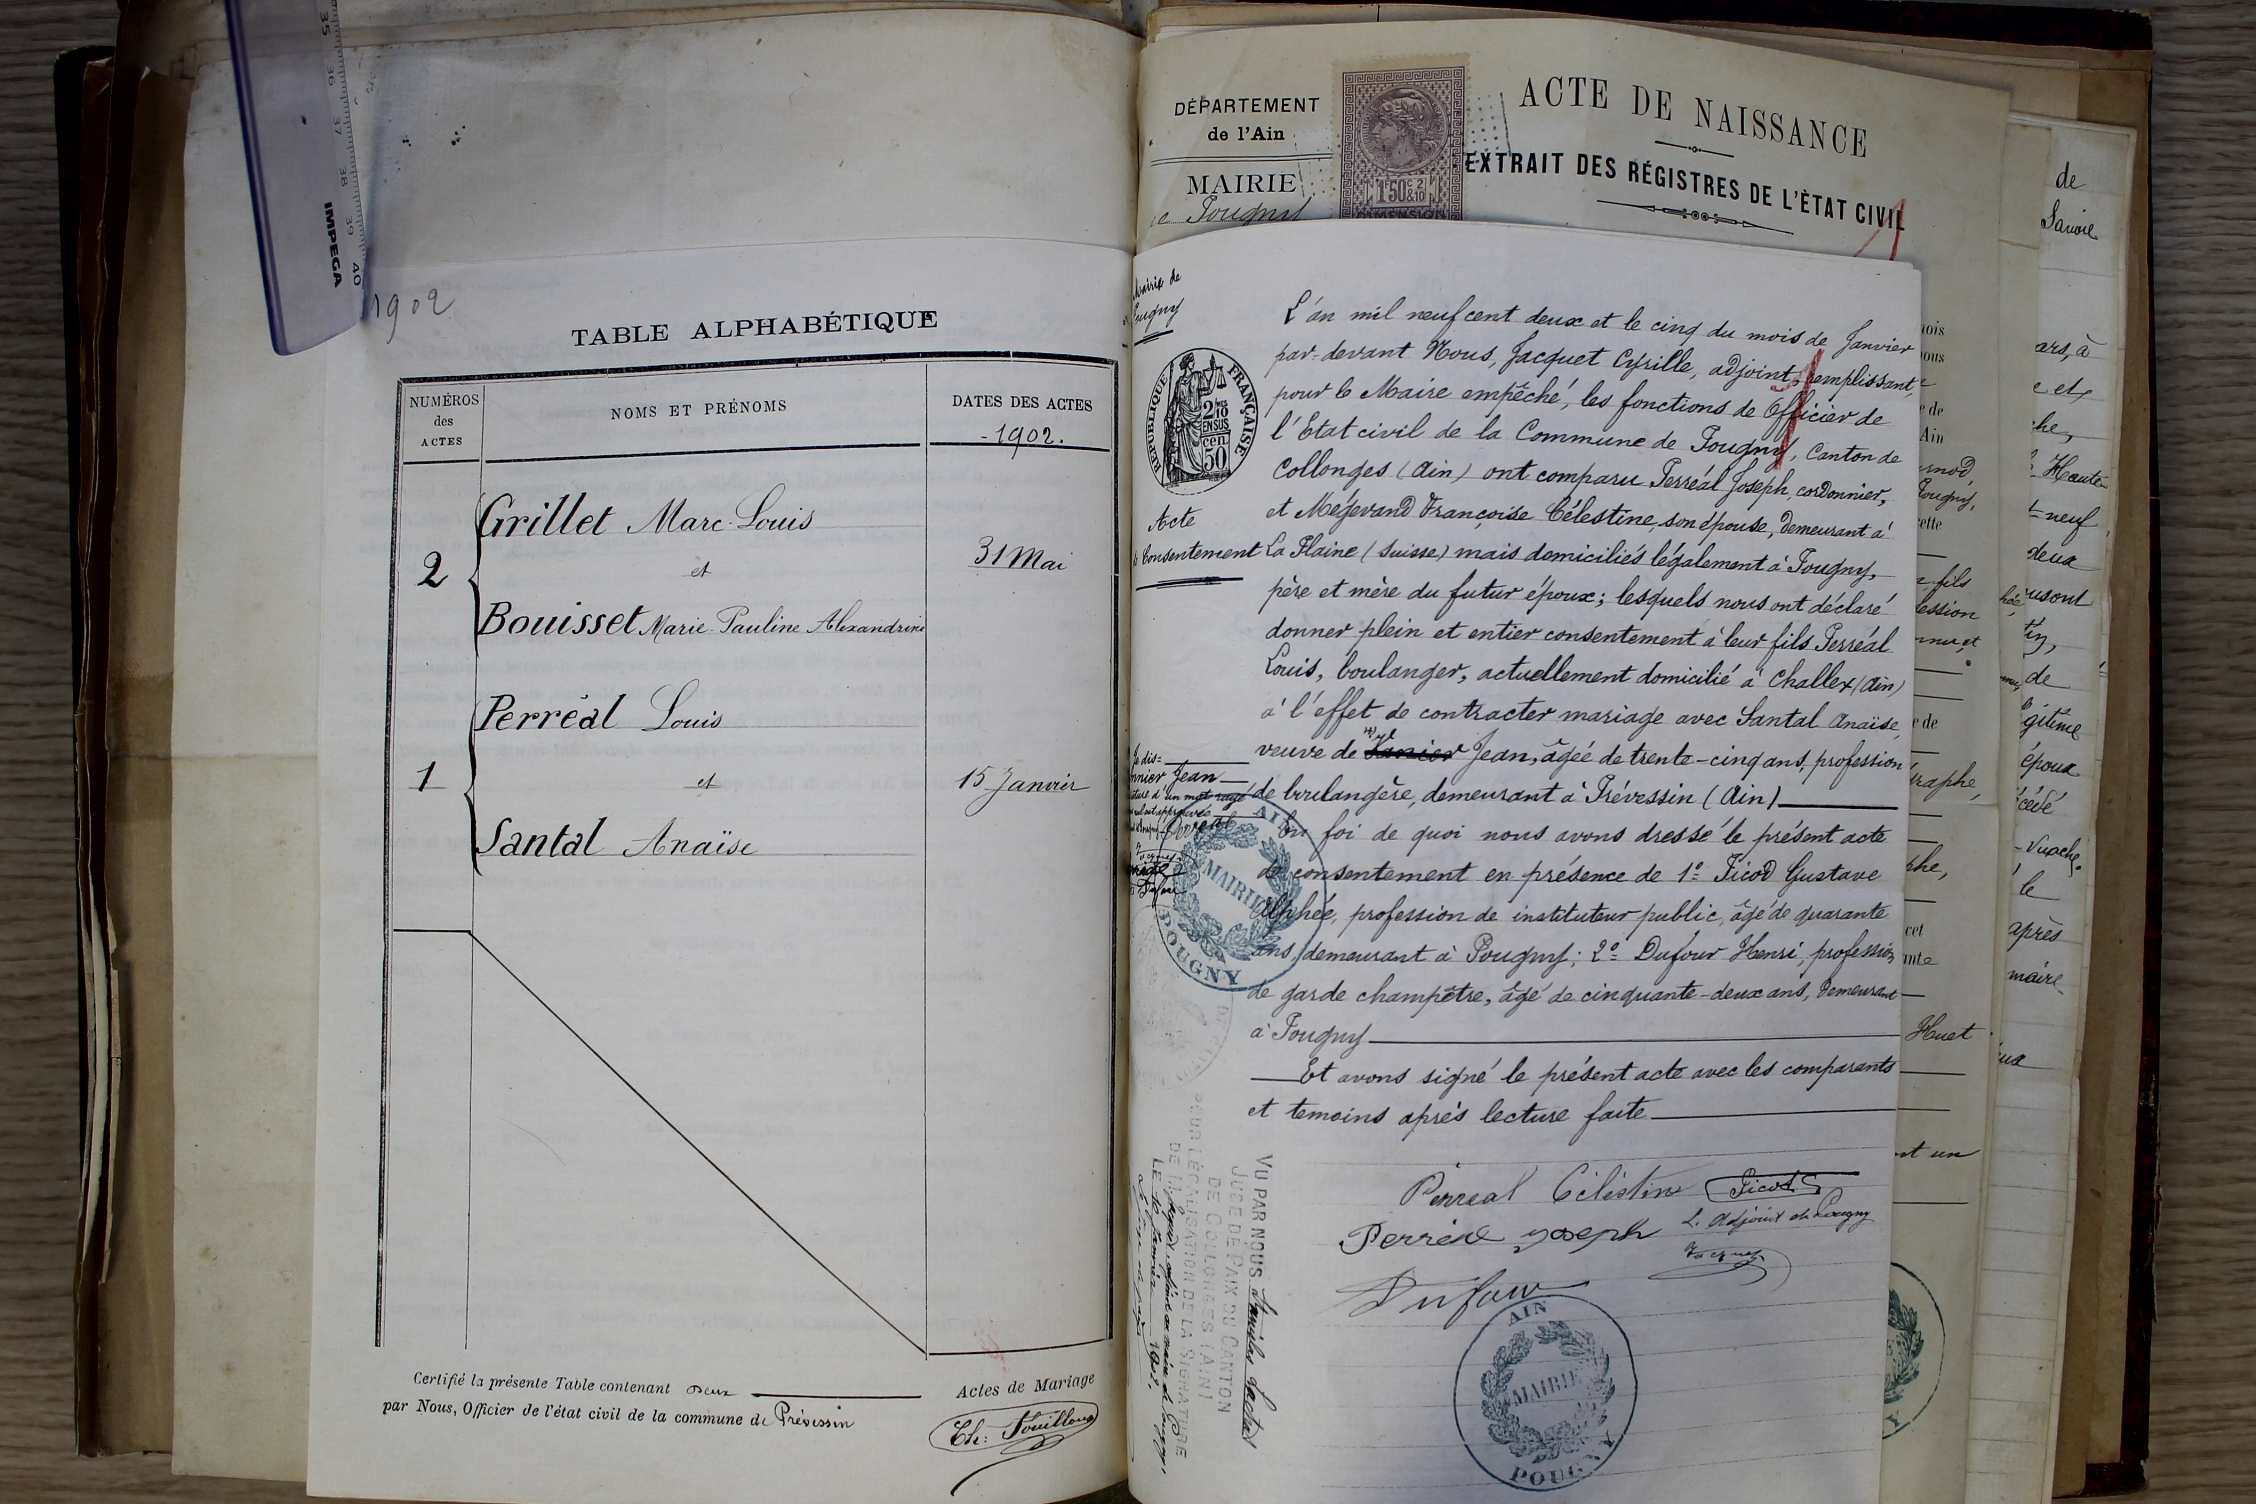 35 36 37 38 39 40
IMPEGA
1902
TABLE ALPHABÉTIQUE
NUMÉROS
des
ACTES
NOMS ET PRÉNOMS
DATES DES ACTES
- 1902.
Grillet Marc Louis
2
et
31 Mai
Bouisset Marie Pauline Alexandrine
Perréal Louis
1
et
15 Janvier
Santal Anaïse
Certifié la présente Table contenant deux
Actes de Mariage
par Nous, Officier de l'état civil de la commune de Prévessin
Th: Fouilloux
DÉPARTEMENT
de l'Ain
MAIRIE
Pougny
1F50c 2/10
DIMENSION
ACTE DE NAISSANCE
EXTRAIT DES RÉGISTRES DE L'ÈTAT CIVIL
Mairie de
Pougny
RÉPUBLIQUE FRANÇAISE
2/10
EN SUS
50 cen
Acte
de Consentement
L'an mil neuf cent deux et le cinq du mois de Janvier
par-devant Nous, Jacquet Cyrille, adjoint, remplissant,
pour le Maire empêché, les fonctions de Officier de
l'Etat civil de la Commune de Pougny, Canton de
Collonges (Ain) ont comparu Perréal Joseph, cordonnier,
et Mégevand Françoise Célestine, son épouse, demeurant à
La Plaine (Suisse) mais domiciliés légalement à Pougny,
père et mère du futur époux; lesquels nous ont déclaré
donner plein et entier consentement à leur fils Perréal
Louis, boulanger, actuellement domicilié à Challex (Ain)
à l'effet de contracter mariage avec Santal Anaïse,
veuve de Jean, âgée de trente-cinq ans, profession
de boulangère, demeurant à Prévessin (Ain)
En foi de quoi nous avons dressé le présent acte
de consentement en présence de 1º Picod Gustave
Alphée, profession de instituteur public, âgé de quarante
ans, demeurant à Pougny; 2º Dufour Henri, profession
de garde champêtre, âgé de cinquante-deux ans, demeurant
à Pougny
Et avons signé le présent acte avec les comparants
et temoins après lecture faite
Je dis=
Jean
d'un mot rayé
Perréal Célestine
Picod G
Perréal Joseph
L. Adjoint de Pougny
Jacquet
Dufour
AIN
MAIRIE
POUGNY
AIN
MAIRIE
POUGNY
VU PAR NOUS
JUGE DE PAIX DU CANTON
DE COLLONGES (AIN)
POUR LÉGALISATION DE LA SIGNATURE
DE M. Jacquet, adjoint au maire de Pougny,
LE Janvier 1902.
de
Savoie
ars, à
e et
che,
Haute
neuf
deux
de
époux
Vuache,
le
après
maire
mois
nous
de
Ain
Pougny,
cette
fils
et
de
cet
Huet
un